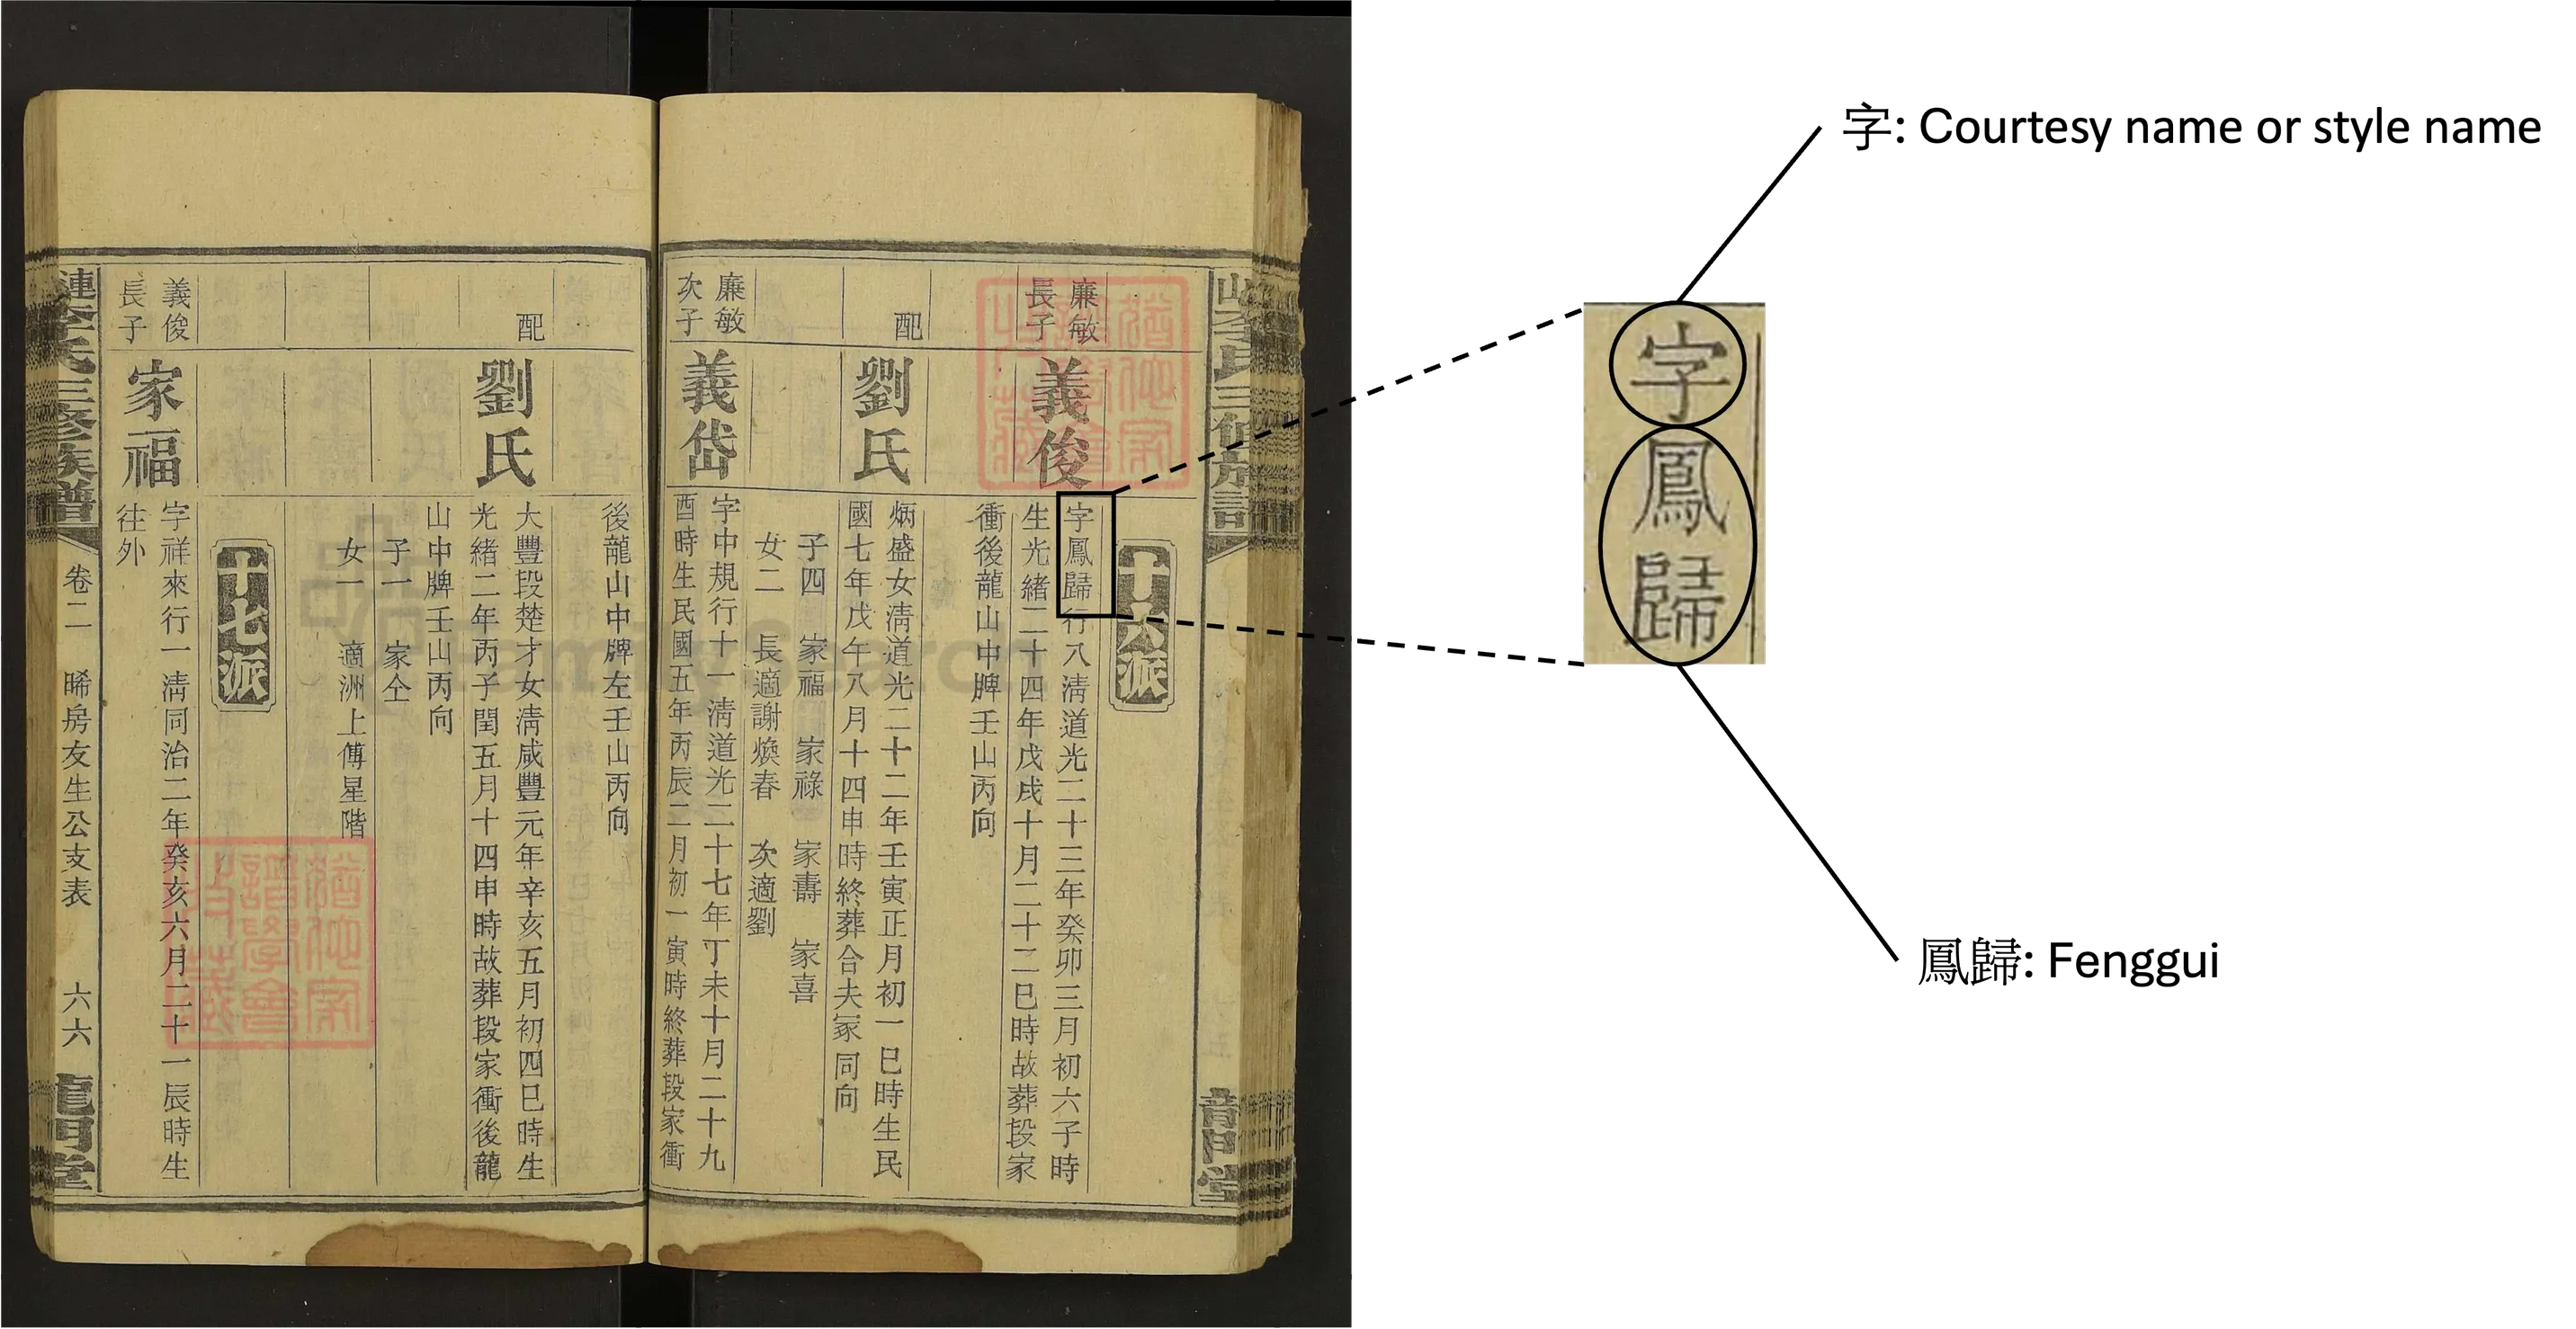 十六派
廉敏
長子
義俊
字鳳歸行八淸道光二十三年癸卯三月初六子時
生光緒二十四年戊戌十月二十二巳時故葬段家
衝後龍山中牌壬山丙向
配
劉氏
炳盛女淸道光二十二年壬寅正月初一巳時生民
國七年戊午八月十四申時終葬合夫冢同向
子四 家福 家祿 家壽 家喜
女二 長適謝煥春 次適劉
廉敏
次子
義岱
字中規行十一淸道光二十七年丁未十月二十九
酉時生民國五年丙辰二月初一寅時終葬段家衝
後龍山中牌左壬山丙向
配
劉氏
大豐段楚才女淸咸豐元年辛亥五月初四巳時生
光緒二年丙子閏五月十四申時故葬段家衝後龍
山中牌壬山丙向
子一 家仝
女一 適洲上傅星階
十七派
義俊
長子
家福
字祥來行一淸同治二年癸亥六月二十一辰時生
往外
漣李氏三修族譜
卷二 晞房友生公支表 六六 龍門堂
字: Courtesy name or style name
字鳳歸
鳳歸: Fenggui